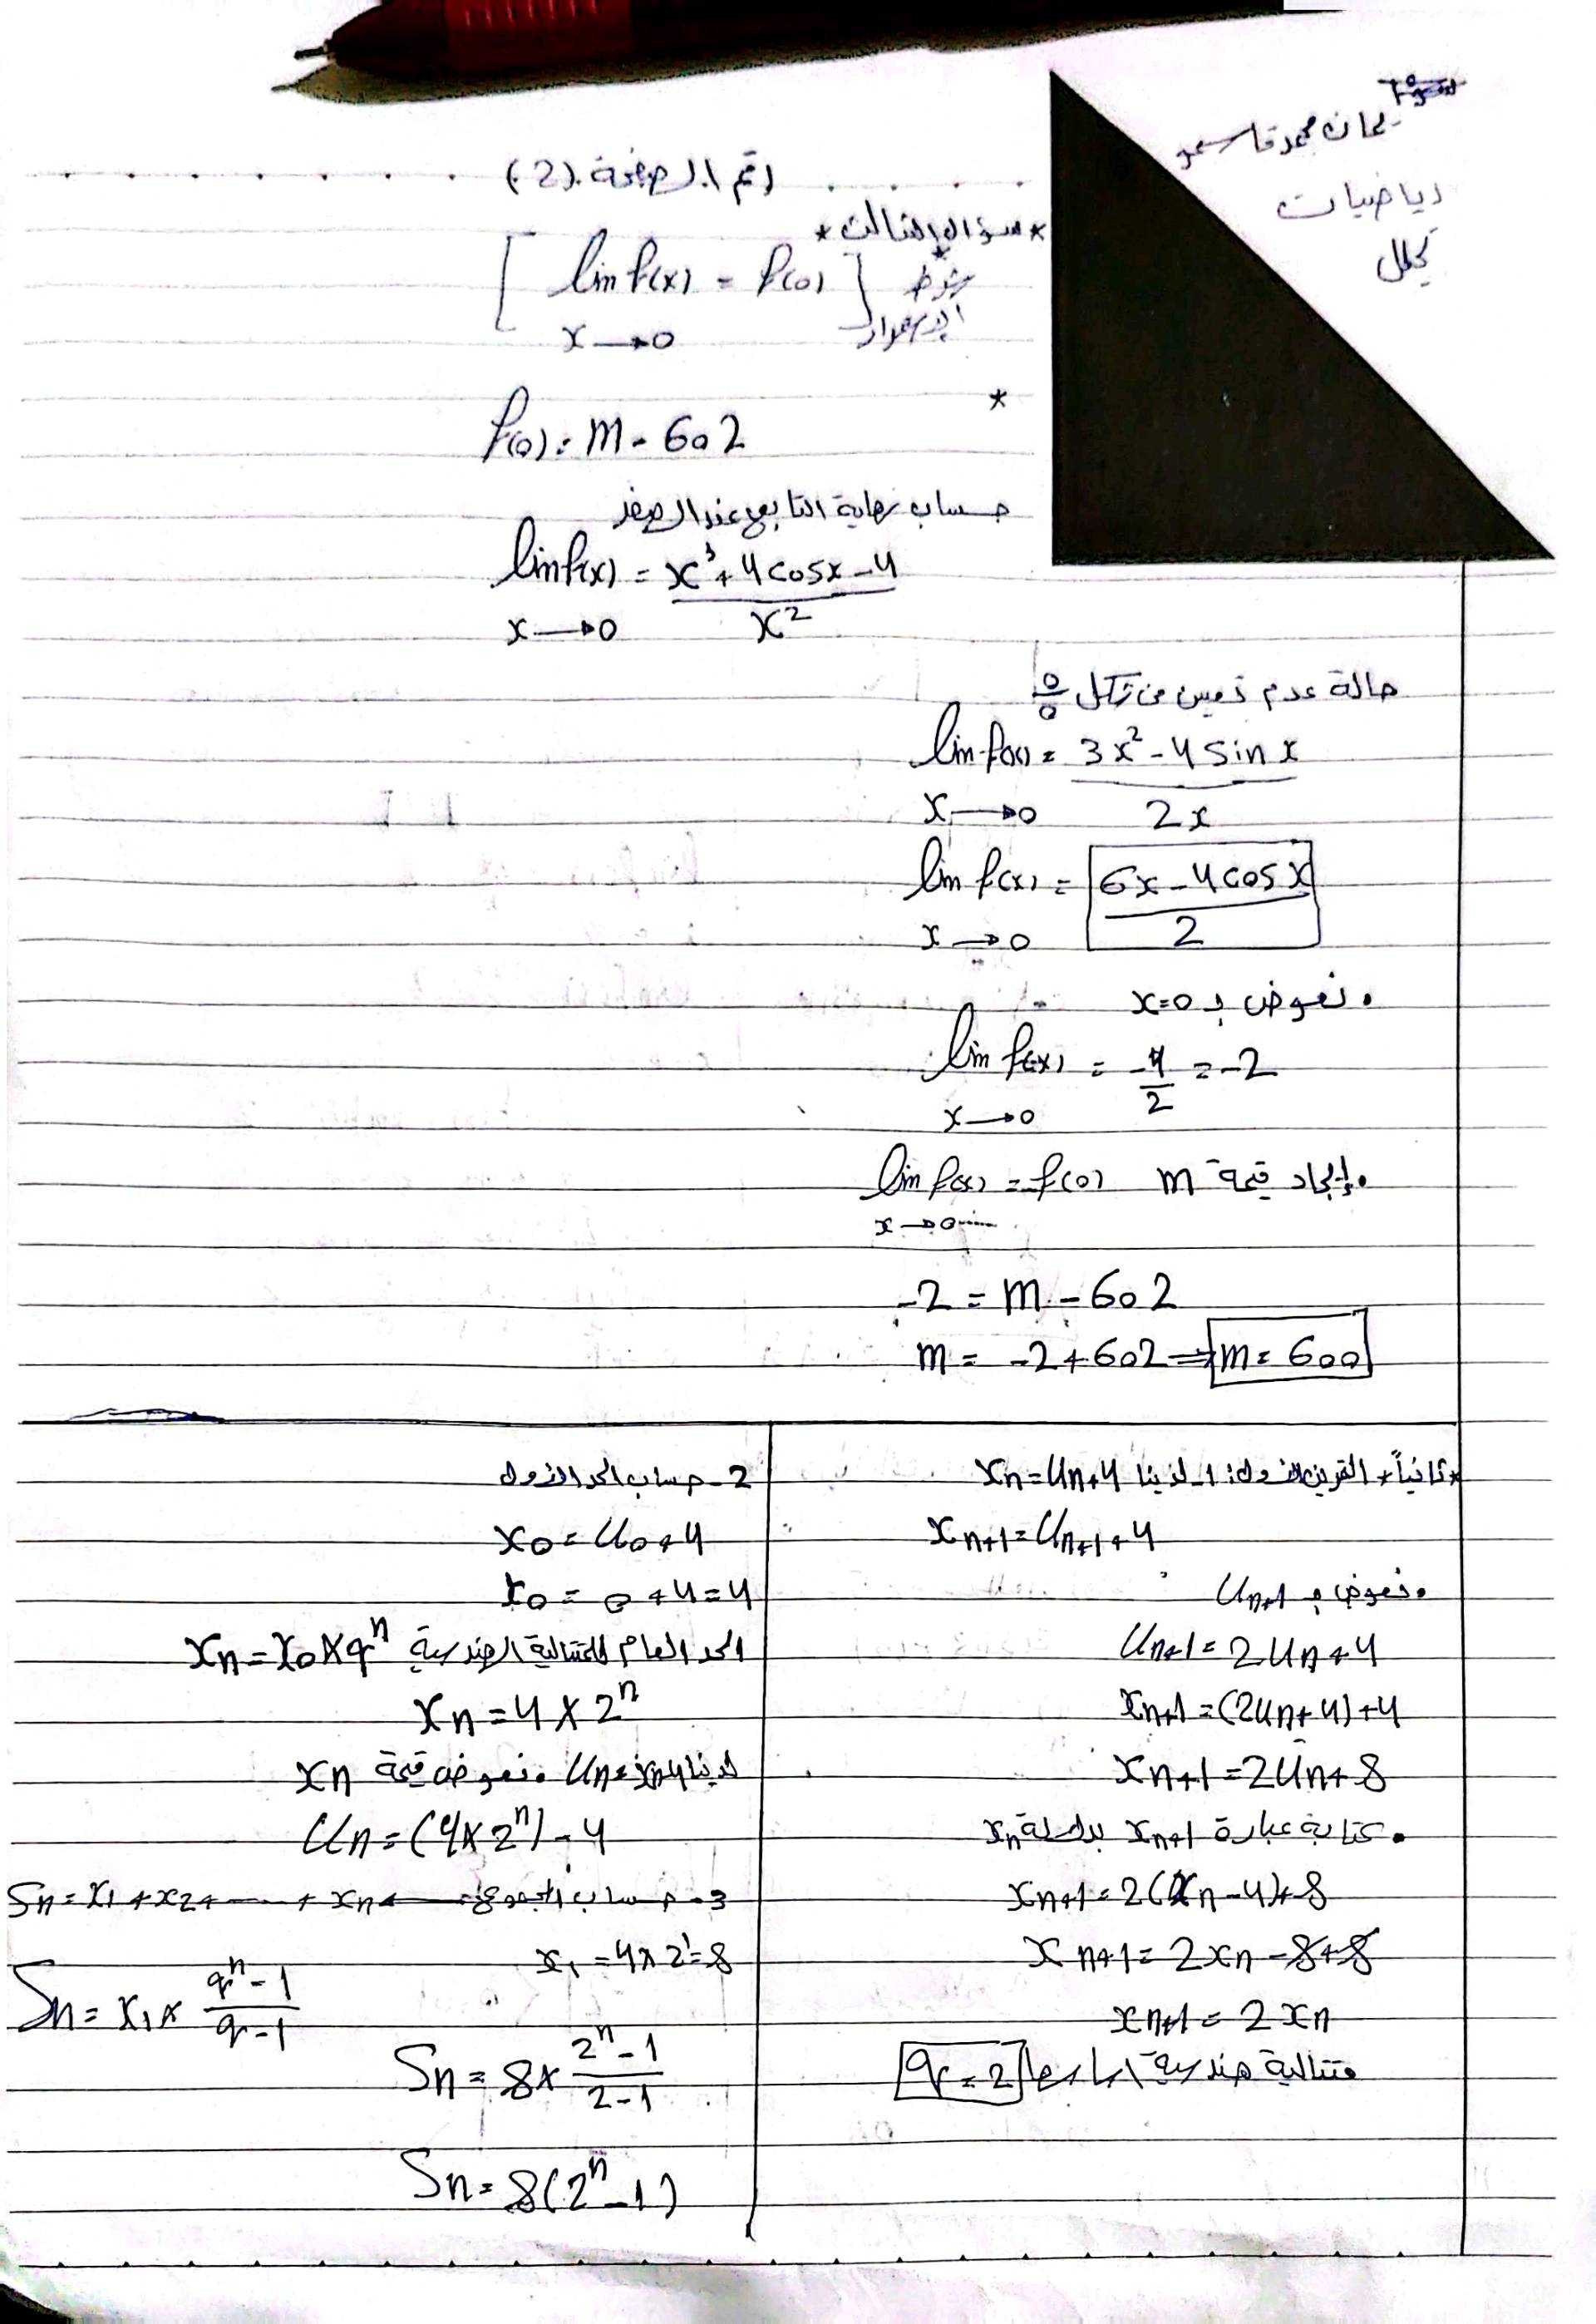 محمد قاسم
رياضيات
رقم الصفحة (2)
* سؤال الثالث *
[ lim f(x) = f(0) ] شرط
x→0 الاستمرار
*
f(0) = m - 602
حساب نهاية التابع عند الصفر
lim f(x) = x³ + 4cosx - 4
x→0 x²
حالة عدم تعيين من شكل 0/0
lim f(x) = 3x² - 4 sin x
x→0 2x
lim f(x) = 6x - 4cosx
x→0 2
• نعوض بـ x=0
lim f(x) = -4/2 = -2
x→0
• إيجاد قيمة m lim f(x) = f(0)
x→0
-2 = m - 602
m = -2+602 ⇒ m = 600
* ثانياً * التمرين الأول: 1- لدينا xn = un+4
xn+1 = un+1 + 4
• نعوض بـ un+1
un+1 = 2un+4
xn+1 = (2un+4)+4
xn+1 = 2un+8
• كتابة عبارة xn+1 بدلالة xn
xn+1 = 2(xn-4)+8
xn+1 = 2xn -8+8
xn+1 = 2xn
متتالية هندسية أساسها q = 2
2- حساب الحد الأول
x0 = u0+4
x0 = 0+4=4
الحد العام للمتتالية الهندسية xn = x0×qⁿ
xn = 4×2ⁿ
لدينا un = xn-4 • نعوض قيمة xn
un = (4×2ⁿ) - 4
3- حساب المجموع: Sn = x1+x2+ ...... + xn
x1 = 4×2¹=8
Sn = x1 × qⁿ-1 / q-1
Sn = 8× 2ⁿ-1 / 2-1
Sn = 8(2ⁿ-1)